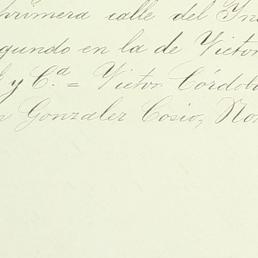 primera calle del In
egundo en la de Victor
l y C.ª = Victor Córdob
n Gonzalez Cosio, No